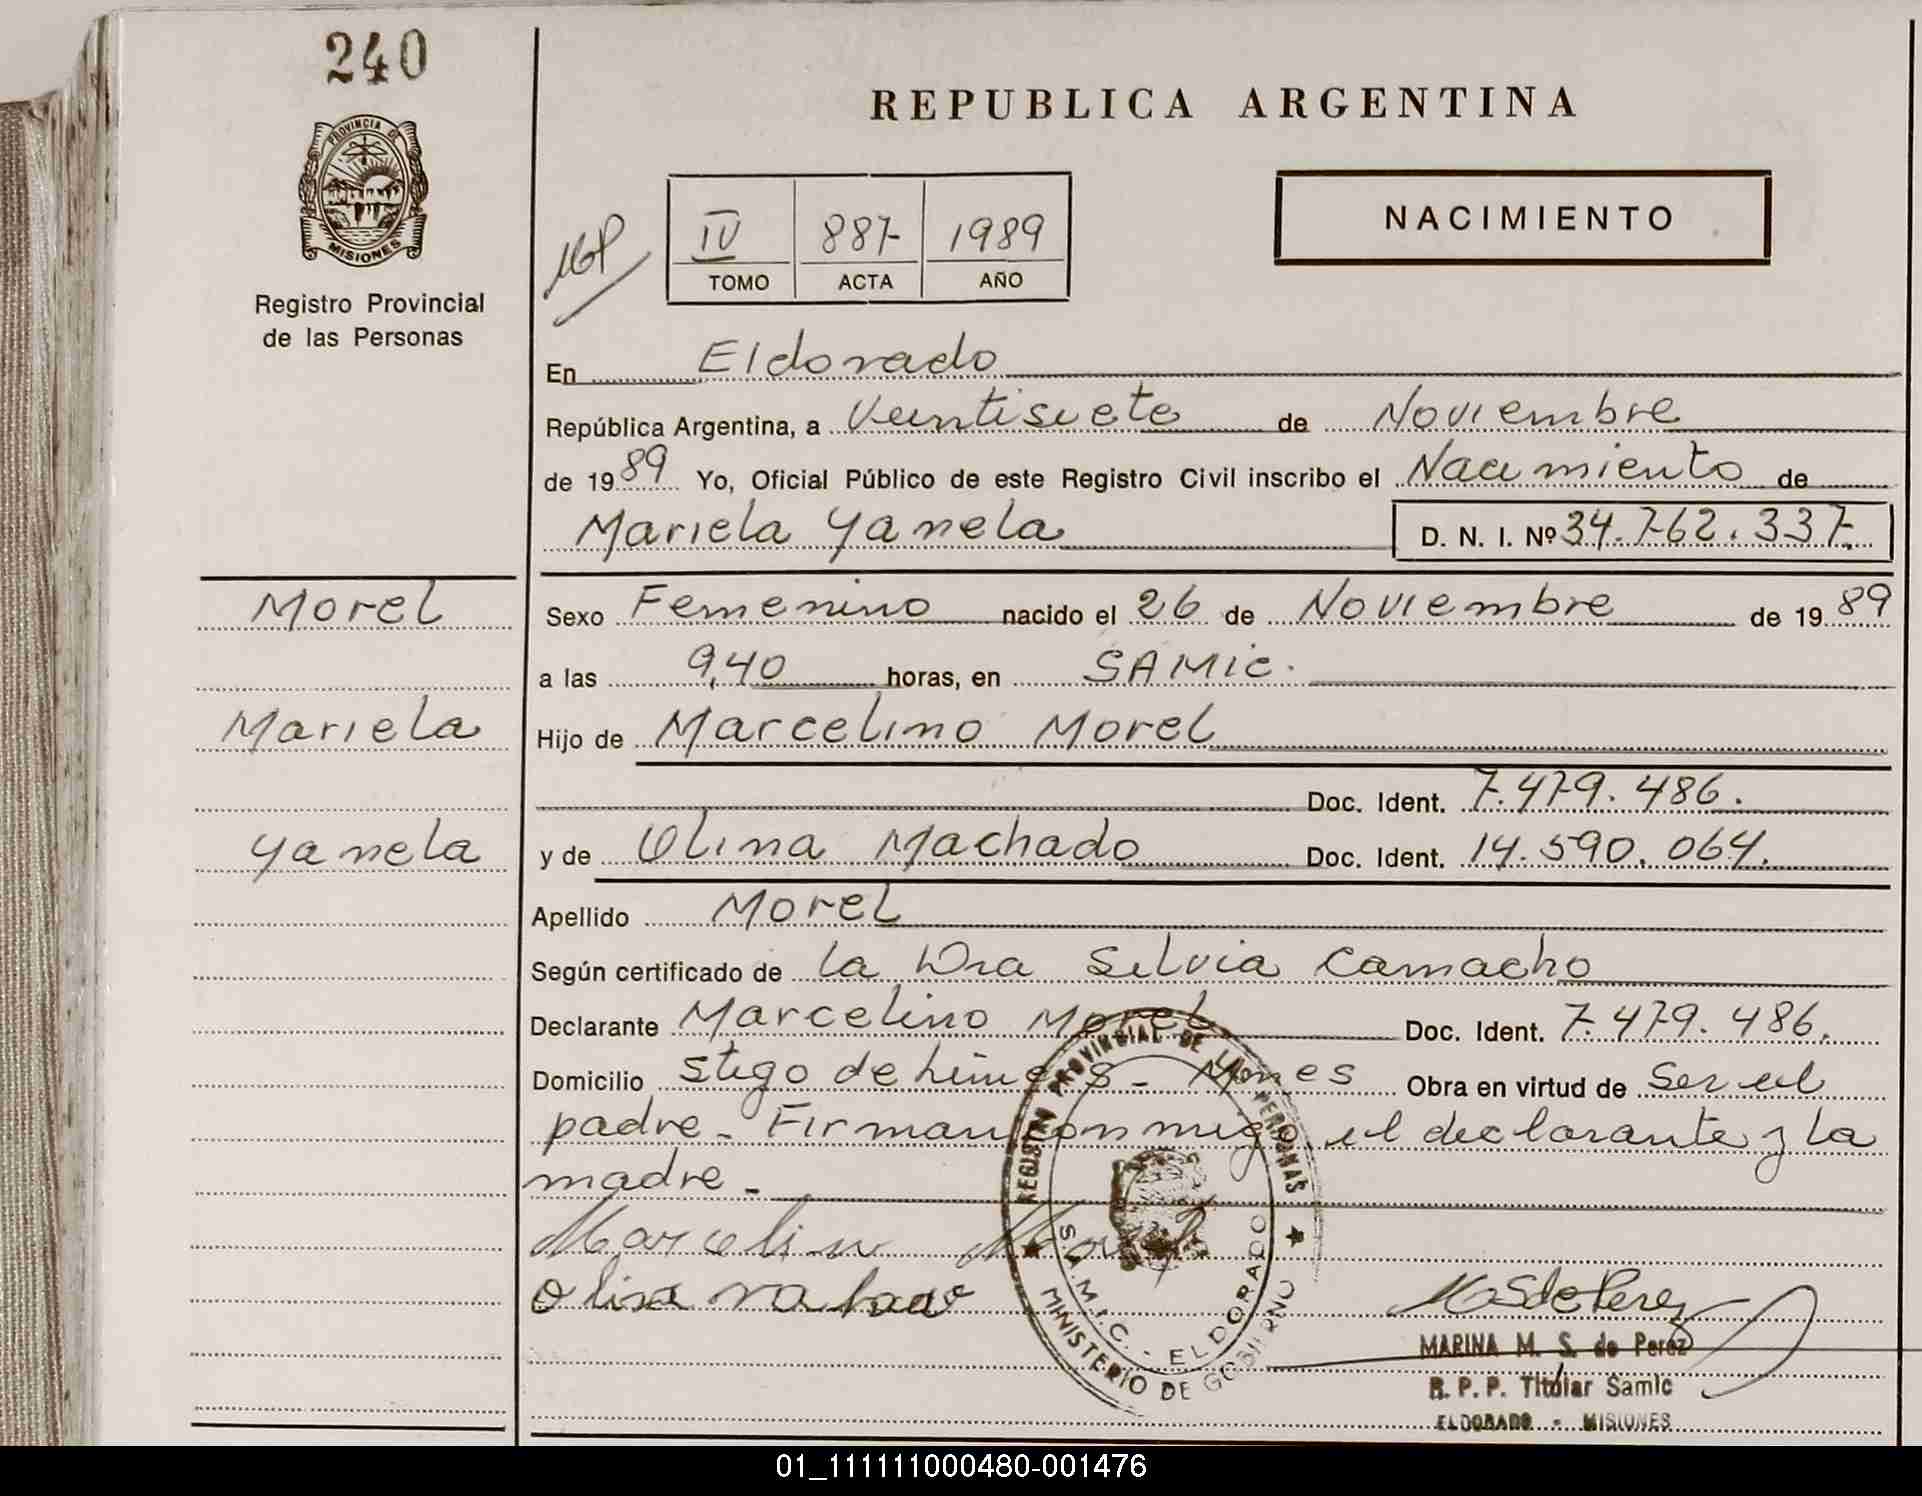 240
PROVINCIA DE
MISIONES
Registro Provincial
de las Personas
REPUBLICA ARGENTINA
NACIMIENTO
IV 887 1989
TOMO ACTA AÑO
En Eldorado
República Argentina, a Veintisiete de Noviembre
de 1989 Yo, Oficial Público de este Registro Civil inscribo el Nacimiento de
Mariela Yanela D. N. I. Nº 34.762.337.
Morel
Mariela
Yanela
Sexo Femenino nacido el 26 de Noviembre de 1989
a las 9,40 horas, en SAMIC.
Hijo de Marcelino Morel
Doc. Ident. 7.479.486.
y de Olina Machado Doc. Ident. 14.590.064.
Apellido Morel
Según certificado de la Dra Silvia Camacho
Declarante Marcelino Morel Doc. Ident. 7.479.486.
Domicilio Stgo de Liniers - Mnes Obra en virtud de ser el
padre - Firman conmigo el declarante y la
madre -
Marcelino Morel
REGISTRO PROVINCIAL DE LAS PERSONAS
S.A.M.I.C. - ELDORADO
MINISTERIO DE GOBIERNO
MARINA M. S. de Perez
R. P. P. Titular Samic
ELDORADO - MISIONES
01_111111000480-001476